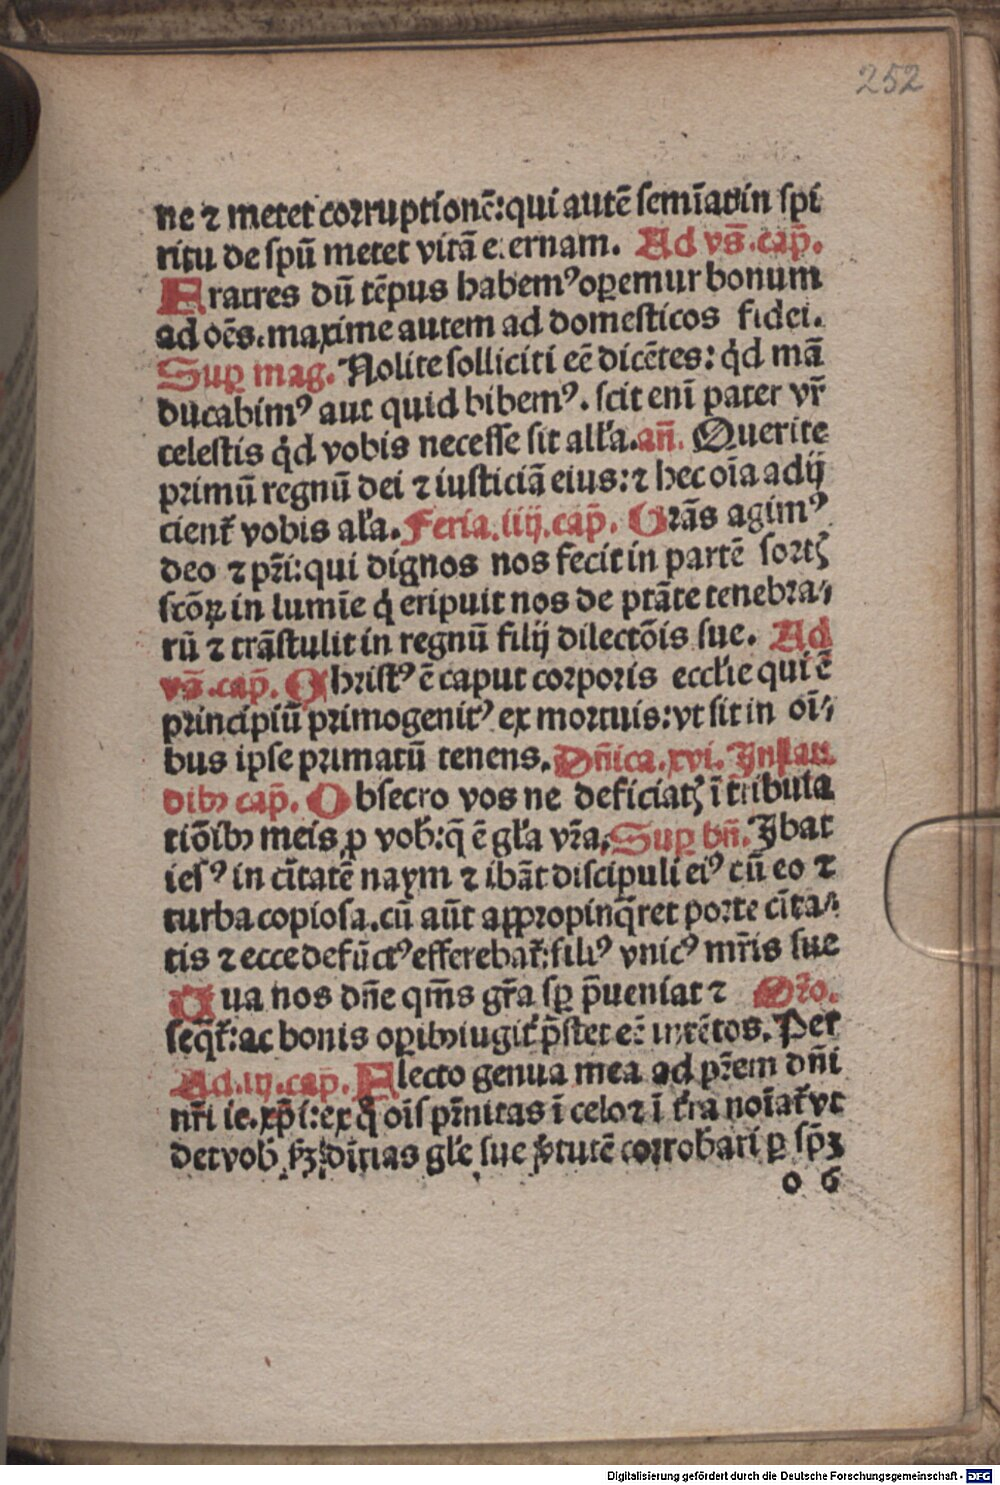 252
ne ⁊ metet corruptionē: qui autē semīat in spi
ritu de spū metet vitā eternam. Ad vs̄. cap̄.
Fratres dū tēpus habemꝰ operemur bonum
ad oēs. maxime autem ad domesticos fidei.
Suꝑ mag. Nolite solliciti eē dicētes: qd mā
ducabimꝰ aut quid bibemꝰ. scit enī pater vr̄
celestis qd vobis necesse sit alľa. an̄. Querite
primū regnū dei ⁊ iusticiā eius: ⁊ hec oīa adij
cient᷑ vobis aľa. Feria. iiij. cap̄. Grās agimꝰ
deo ⁊ pr̄i: qui dignos nos fecit in partē sortꝭ
scōꝝ in lumīe q eripuit nos de ptāte tenebra⸗
rū ⁊ trāstulit in regnū filij dilectōis sue. Ad
vs̄. cap̄. Christꝰ ē caput corporis eccľie qui ē
principiū primogenitꝰ ex mortuis: vt sit in oī⸗
bus ipse primatū tenens. Dn̄ica. xvi. In lau
dibꝫ cap̄. Obsecro vos ne deficiatꝭ ī tribula
tiōibꝫ meis ꝓ vob̄: q̄ ē gľa vr̄a. Suꝑ bn̄. Ibat
iesꝰ in cītatē naym ⁊ ibāt discipuli eiꝰ cū eo ⁊
turba copiosa. cū aūt appropinq̄ret porte cīta⸗
tis ⁊ ecce defūctꝰ efferebat᷑: filiꝰ vnicꝰ mr̄is sue
Tua nos dn̄e qm̄s gr̄a sꝑ p̄ueniat ⁊ Oro.
seq̄t᷑: ac bonis oꝑibꝫ iugit᷑ p̄stet eē intētos. Per
Ad. iij. cap̄. Flecto genua mea ad pr̄em dn̄i
nr̄i ie. xp̄i: ex q̊ oīs pr̄nitas ī celo ⁊ ī t᷑ra noīat᷑ vt
det vob̄ diuitias gľe sue ꝟtutē corrobari ꝑ sp̄ꝫ
o 6
Digitalisierung gefördert durch die Deutsche Forschungsgemeinschaft - DFG